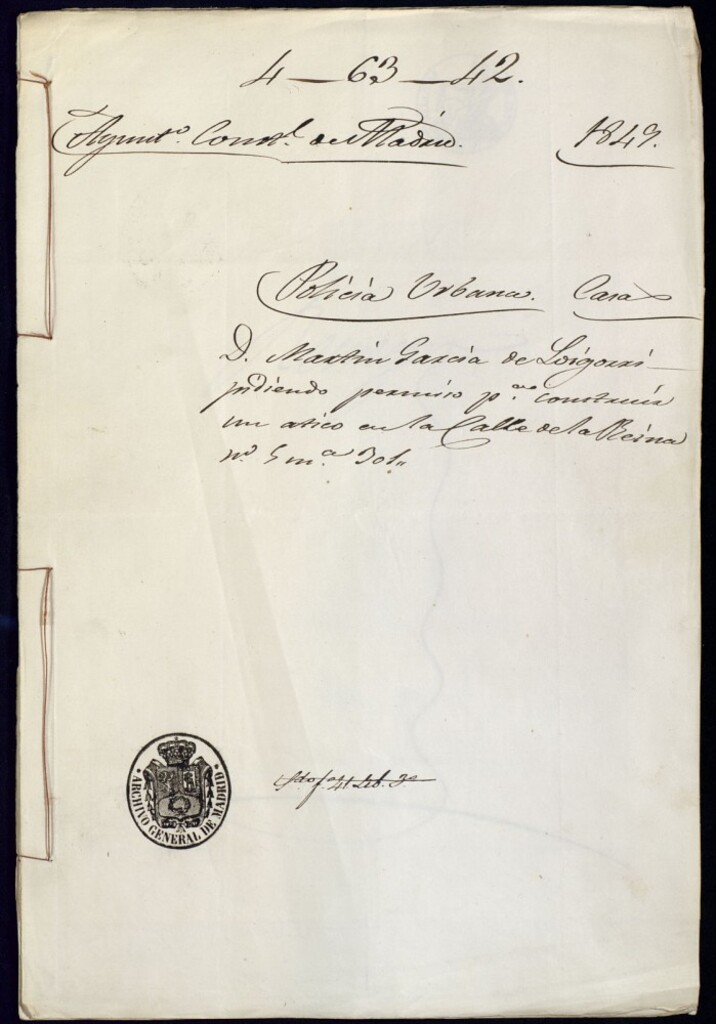 4-63-42.
Ayunto. Constl. de Madrid. 1849.
Policia Urbana. Casas
D. Martin Garcia de Loigorri
pidiendo permiso pa. construir
un atico en la Calle de la Reina
no. 5 ma. 301"
ARCHIVO GENERAL DE MADRID